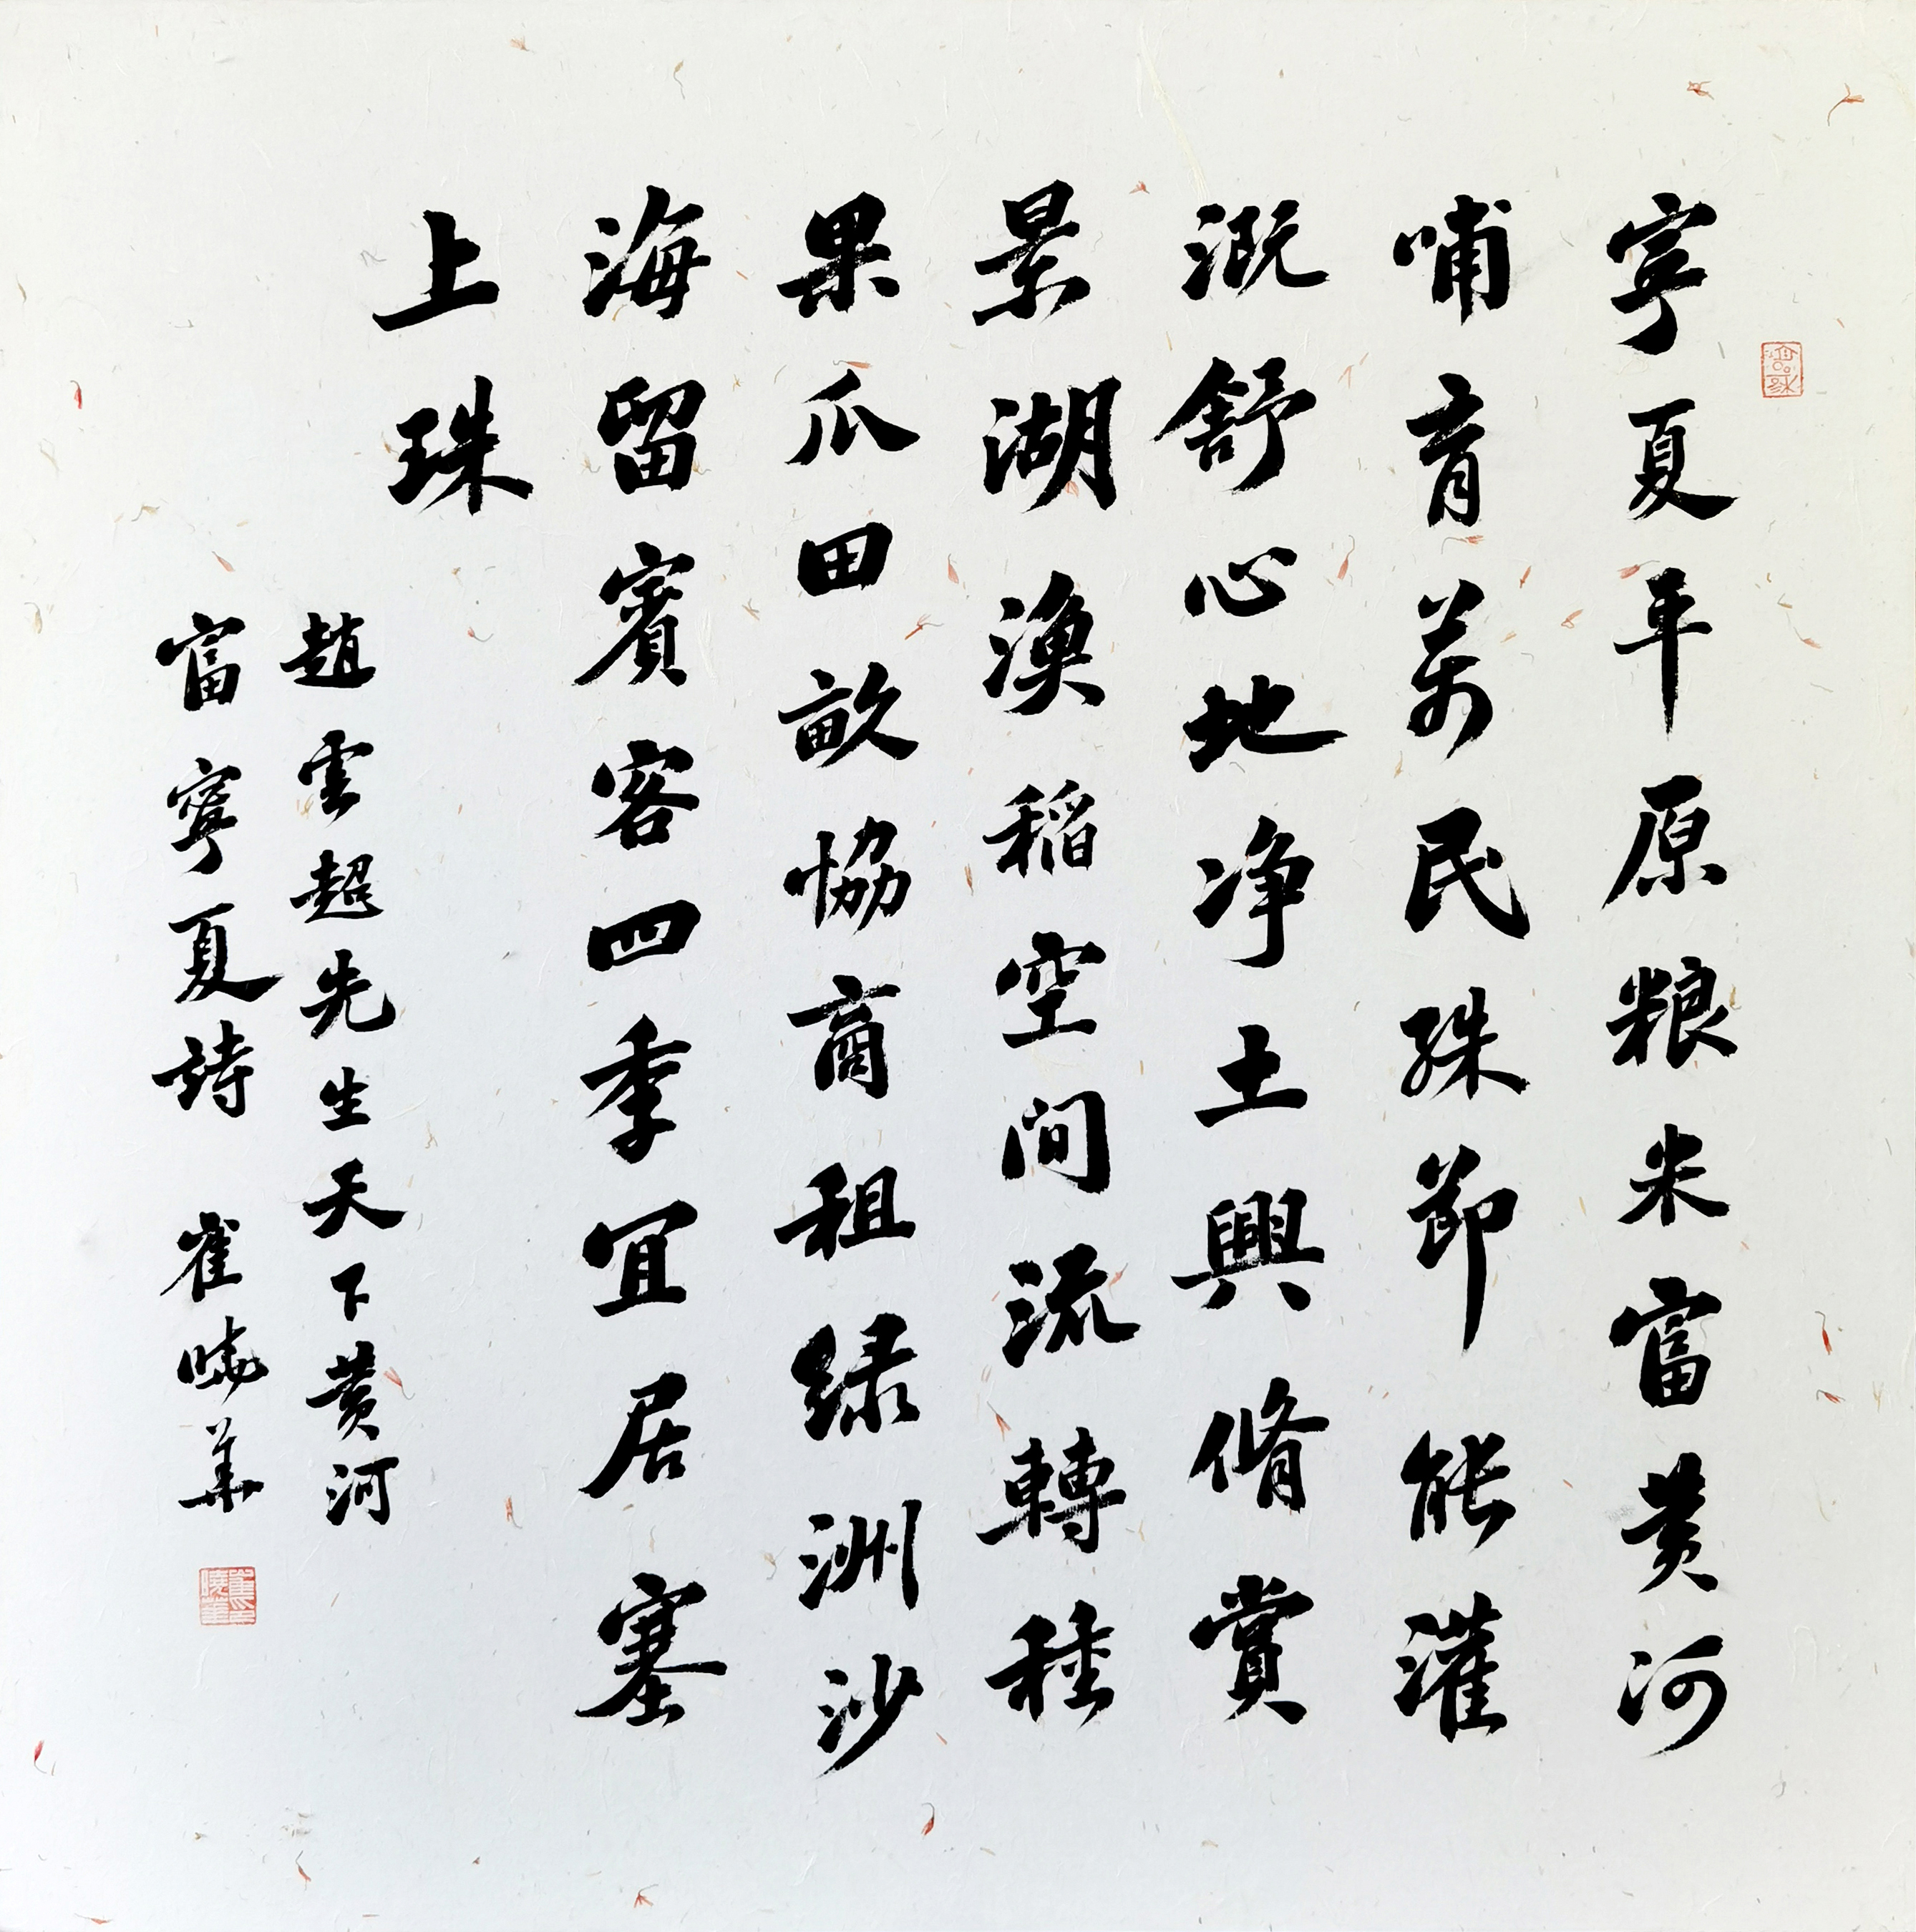 寧夏平原粮米富黄河
哺育萬民殊節能灌
溉舒心地净土興脩賞
景湖漁稲空间流轉种
果瓜田畝恊商租绿洲沙
海留賓客四季宜居塞
上珠
趙雲超先生天下黄河
富寧夏詩 崔曉華
崔曉華印